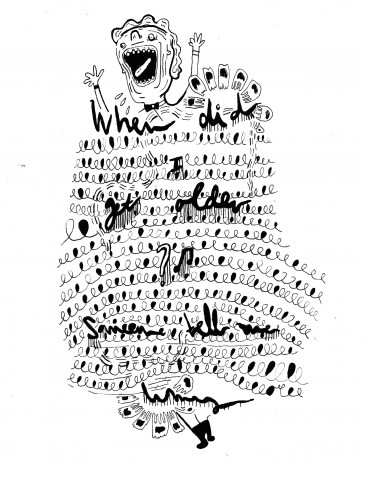 When did
I
get older
?
Someone tell me
why